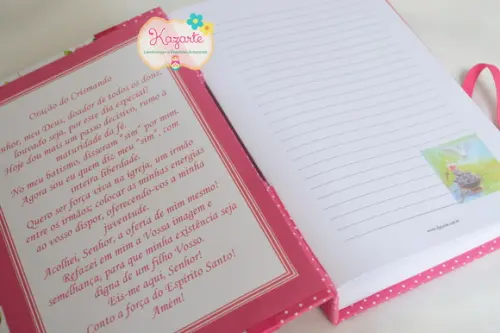 Kazarte
Oração do Crismando
Senhor, meu Deus, doador de todos os dons,
louvado seja, por este dia especial!
Hoje dou mais um passo decisivo, rumo à
maturidade da fé.
No meu batismo, disseram "sim" por mim.
Agora sou eu quem diz, meu "sim", com
inteira liberdade.
Quero ser força viva na igreja, um irmão
entre os irmãos; colocar as minhas energias
ao vosso dispor, oferecendo-vos a minha
juventude.
Acolhei, Senhor, a oferta de mim mesmo!
Refazei em mim a Vossa imagem e
semelhança, para que minha existência seja
digna de um filho Vosso.
Eis-me aqui, Senhor!
Conto a força do Espírito Santo!
Amém!